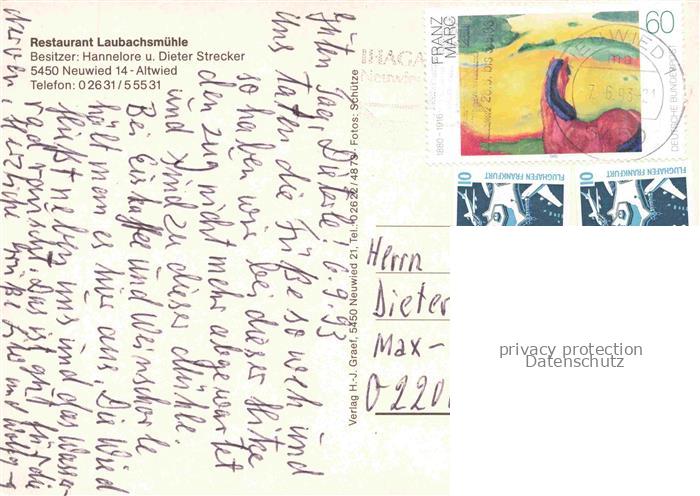 Restaurant Laubachsmühle
Besitzer: Hannelore u. Dieter Strecker
5450 Neuwied 14 - Altwied
Telefon: 0 26 31 / 5 55 31
Guten Tag, Dieterle, 6.9.93
Uns taten die Füße so weh und
so haben wir bei dieser Hitze
den Zug nicht mehr abgewartet
und sind zu dieser Mühle.
Bei Eiskaffee und Weinschorle
hält man es hier aus. Die Wied
fließt neben uns und das Wasser-
rad rauscht. Das ist gut für die
Nerven. Herzliche Grüße
Verlag H.-J. Graef, 5450 Neuwied 21, Tel. 0 26 22 / 48 73 · Fotos: Schütze
IHAGA
Neuwied
FRANZ MARC
1880-1916
60
DEUTSCHE BUNDESPOST
NEUWIED
10
FLUGHAFEN FRANKFURT
10
FLUGHAFEN FRANKFURT
Herrn
Dieter
Max-
O 220
privacy protection
Datenschutz